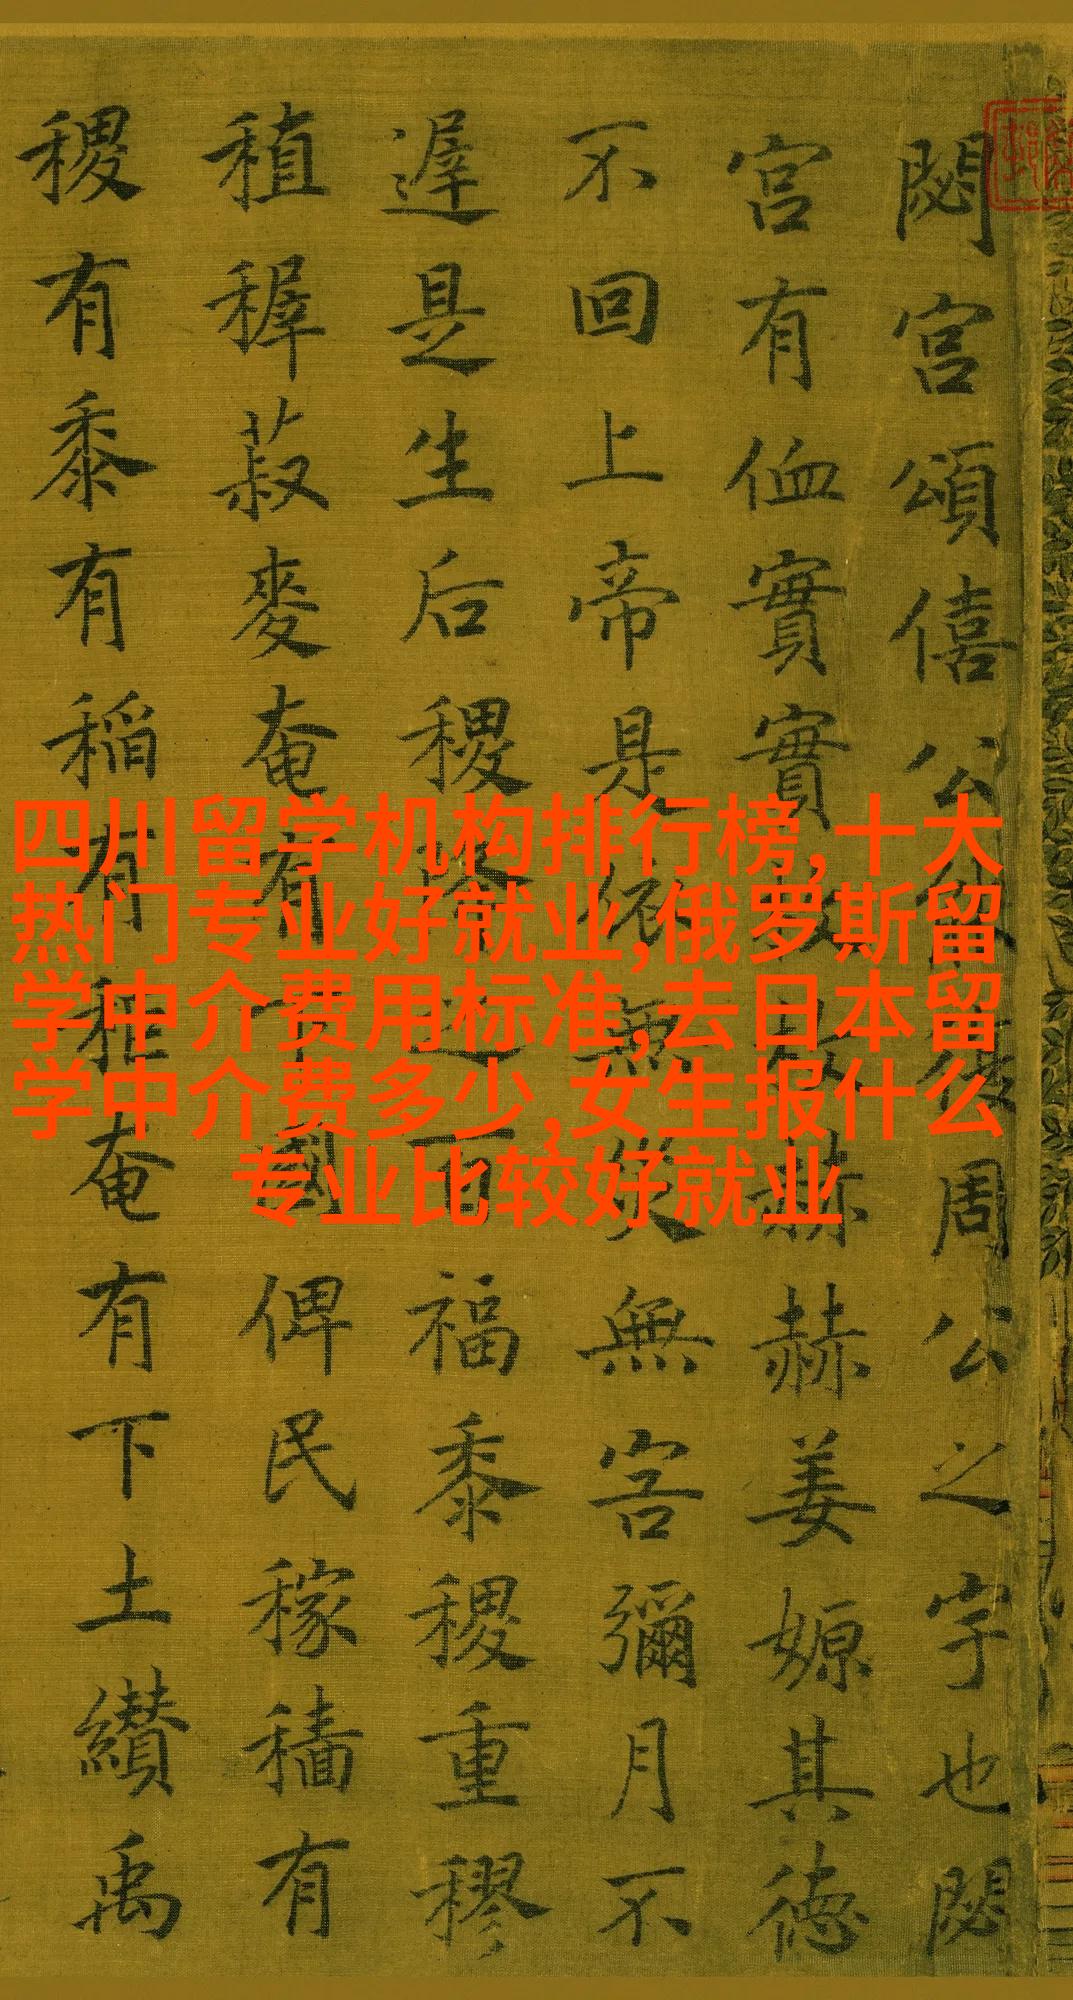 四川留学机构排行榜,十大
热门专业好就业,俄罗斯留
学中介费用标准,去日本留
学中介费多少,女生报什么
专业比较好就业
閟宮頌僖公能復周公之宇也閟
宮有侐實實枚枚赫赫姜嫄其德
不回上帝是依無災無害彌月不
遲是生后稷降之百福黍稷重穋
稙穉菽麥奄有下國俾民稼穡有
稷有黍有稻有秬奄有下土纘禹